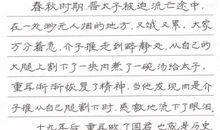 春秋时期,晋太子被迫流亡途中,
在一处渺无人烟的地方,又饿又累,大家
万分着急,介子推走到路静处,从自己的
大腿上割下了一块肉煮了一碗汤给太子,
重耳渐渐恢复了精神,当他发现肉是介
子推从自己腿割下时,感激地流下了眼泪,
十九年后,重耳做了国君也就是历史